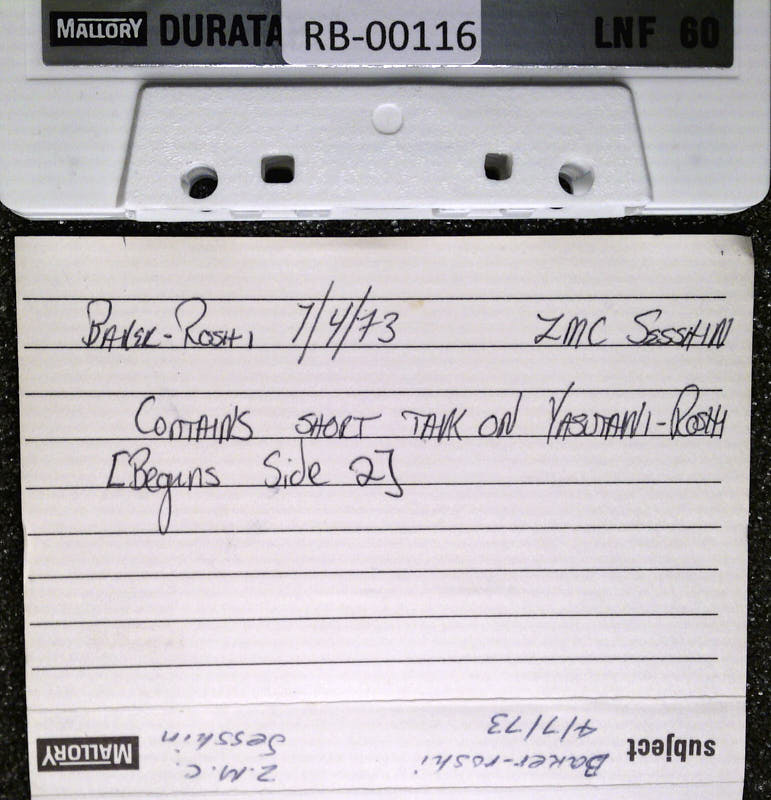 MALLORY DURATA RB-00116 LNF 60
BAKER-ROSHI 7/4/73 ZMC SESSHIN
CONTAINS SHORT TALK ON YASUTANI-ROSHI
[Begins Side 2]
subject Baker-roshi Z.M.C.
4/7/73 Sesshin
MALLORY